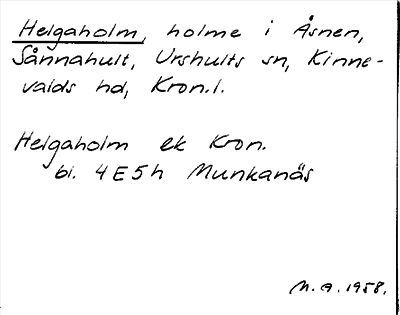 Helgaholm, holme i Åsnen,
Sånnahult, Urshults sn, Kinne-
valds hd, Kron.l.
Helgaholm ek Kron.
bl. 4E5h Munkanäs
M.A. 1958.